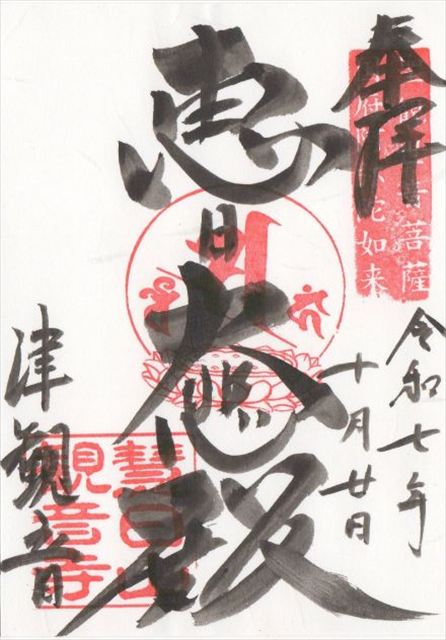 奉拝
菩薩
陀如来
令和七年
十月廿日
恵日大悲殿
慧日山
観音寺
津観音